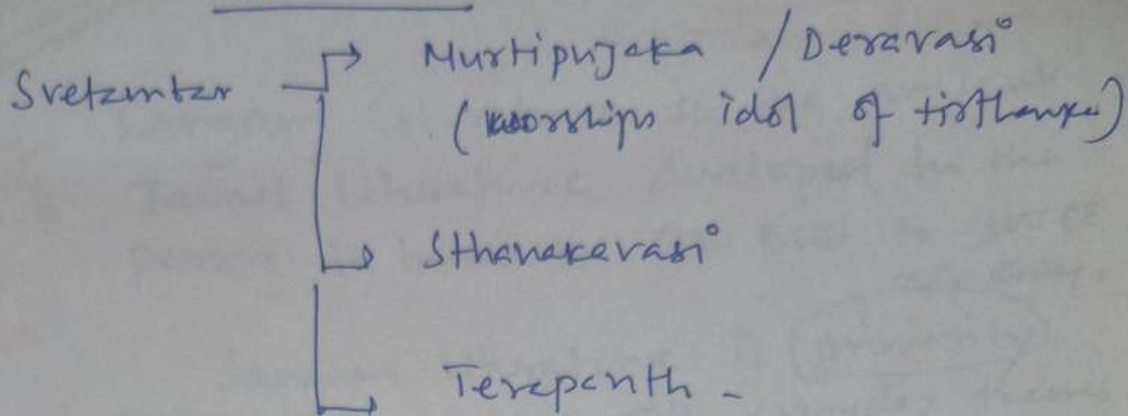 Svetambar → Murtipujaka / Deravasi
(worships idol of tirthanka)
→ Sthanakavasi
→ Terapanth -